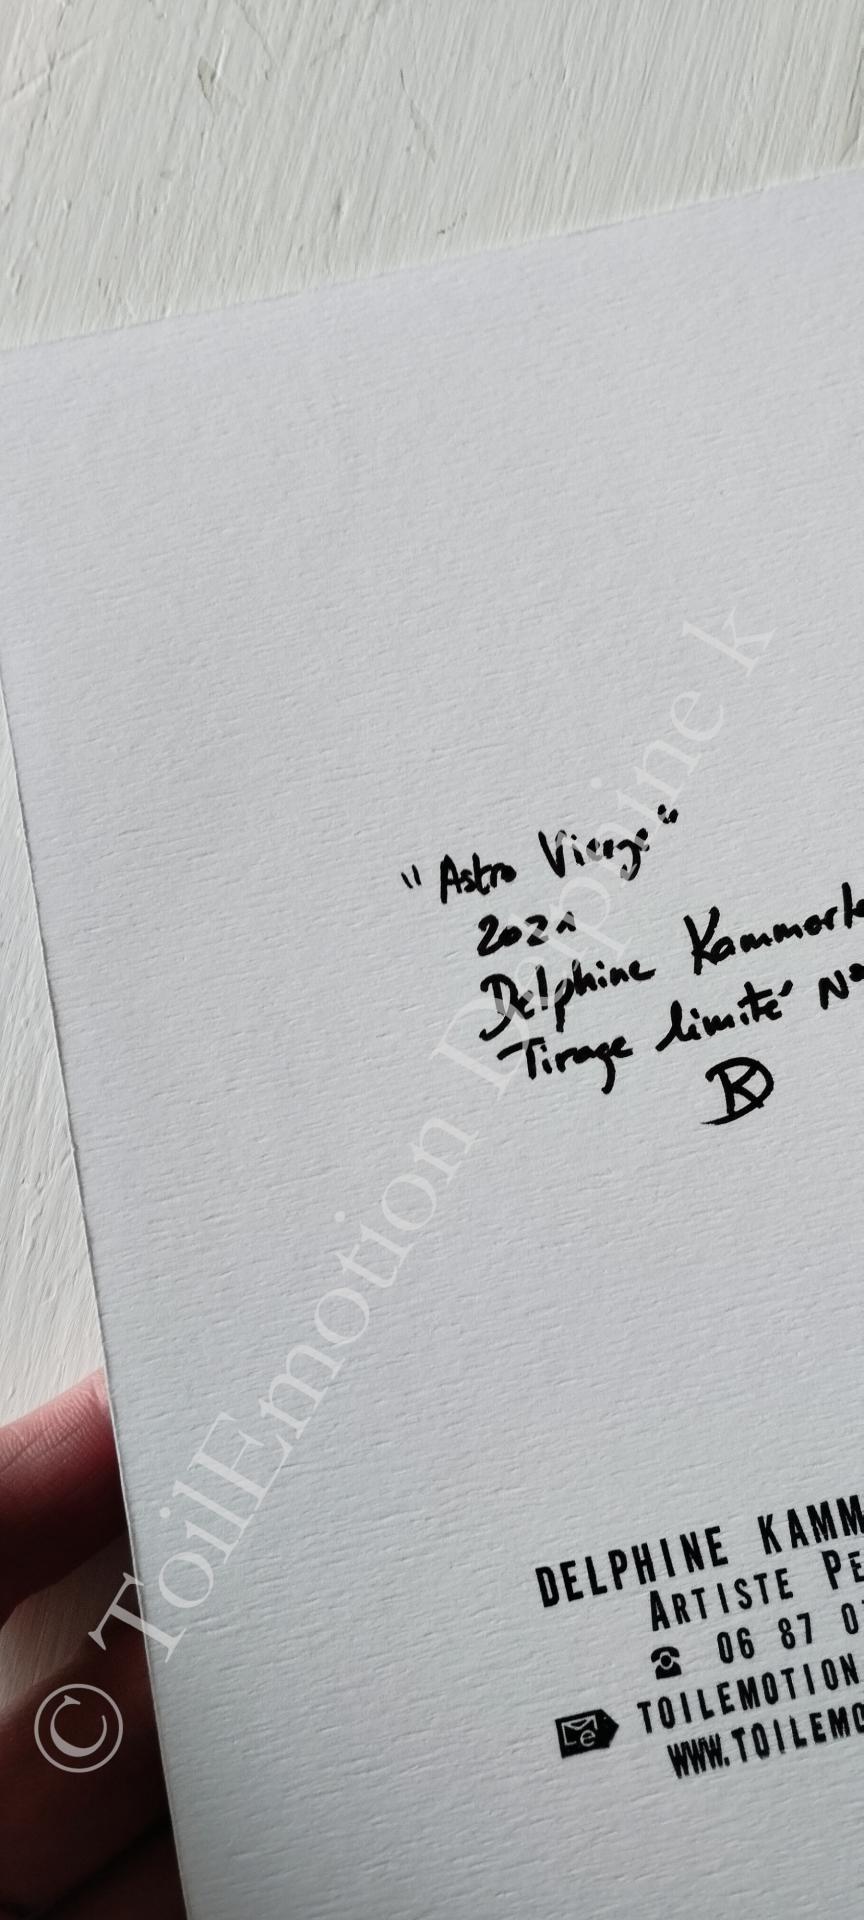 "Astro Vierge"
2021
Delphine Kammerle
Tirage limité N°
DK
DELPHINE KAMM
ARTISTE PE
06 87 0
TOILEMOTION
WWW.TOILEMO
© ToilEmotion Delphine k